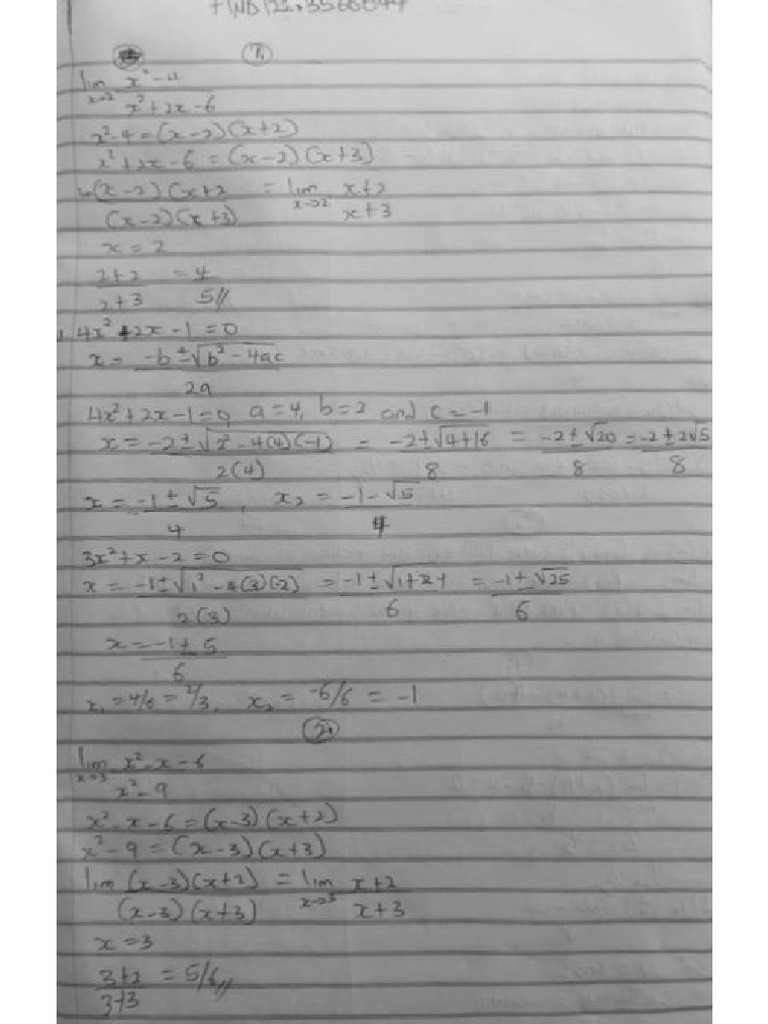 ①
lim x→2 x²-4 / x²+2x-6
x²-4=(x-2)(x+2)
x²+2x-6=(x-2)(x+3)
(x-2)(x+2 / (x-2)(x+3) = lim x→2 x+2 / x+3
x=2
2+2 / 2+3 = 4/5//
4x²+2x-1=0
x= -b±√b²-4ac / 2a
4x²+2x-1=0, a=4, b=2 and c=-1
x= -2±√2²-4(4)(-1) / 2(4) = -2±√4+16 / 8 = -2±√20 / 8 = -2±2√5 / 8
x= -1±√5 / 4, x₂= -1-√5 / 4
3x²+x-2=0
x= -1±√1²-4(3)(-2) / 2(3) = -1±√1+24 / 6 = -1±√25 / 6
x= -1±5 / 6
x₁=4/6=2/3, x₂= -6/6 = -1
②
lim x→3 x²-x-6 / x²-9
x²-x-6=(x-3)(x+2)
x²-9=(x-3)(x+3)
lim (x-3)(x+2) / (x-3)(x+3) = lim x→3 x+2 / x+3
x=3
3+2 / 3+3 = 5/6//